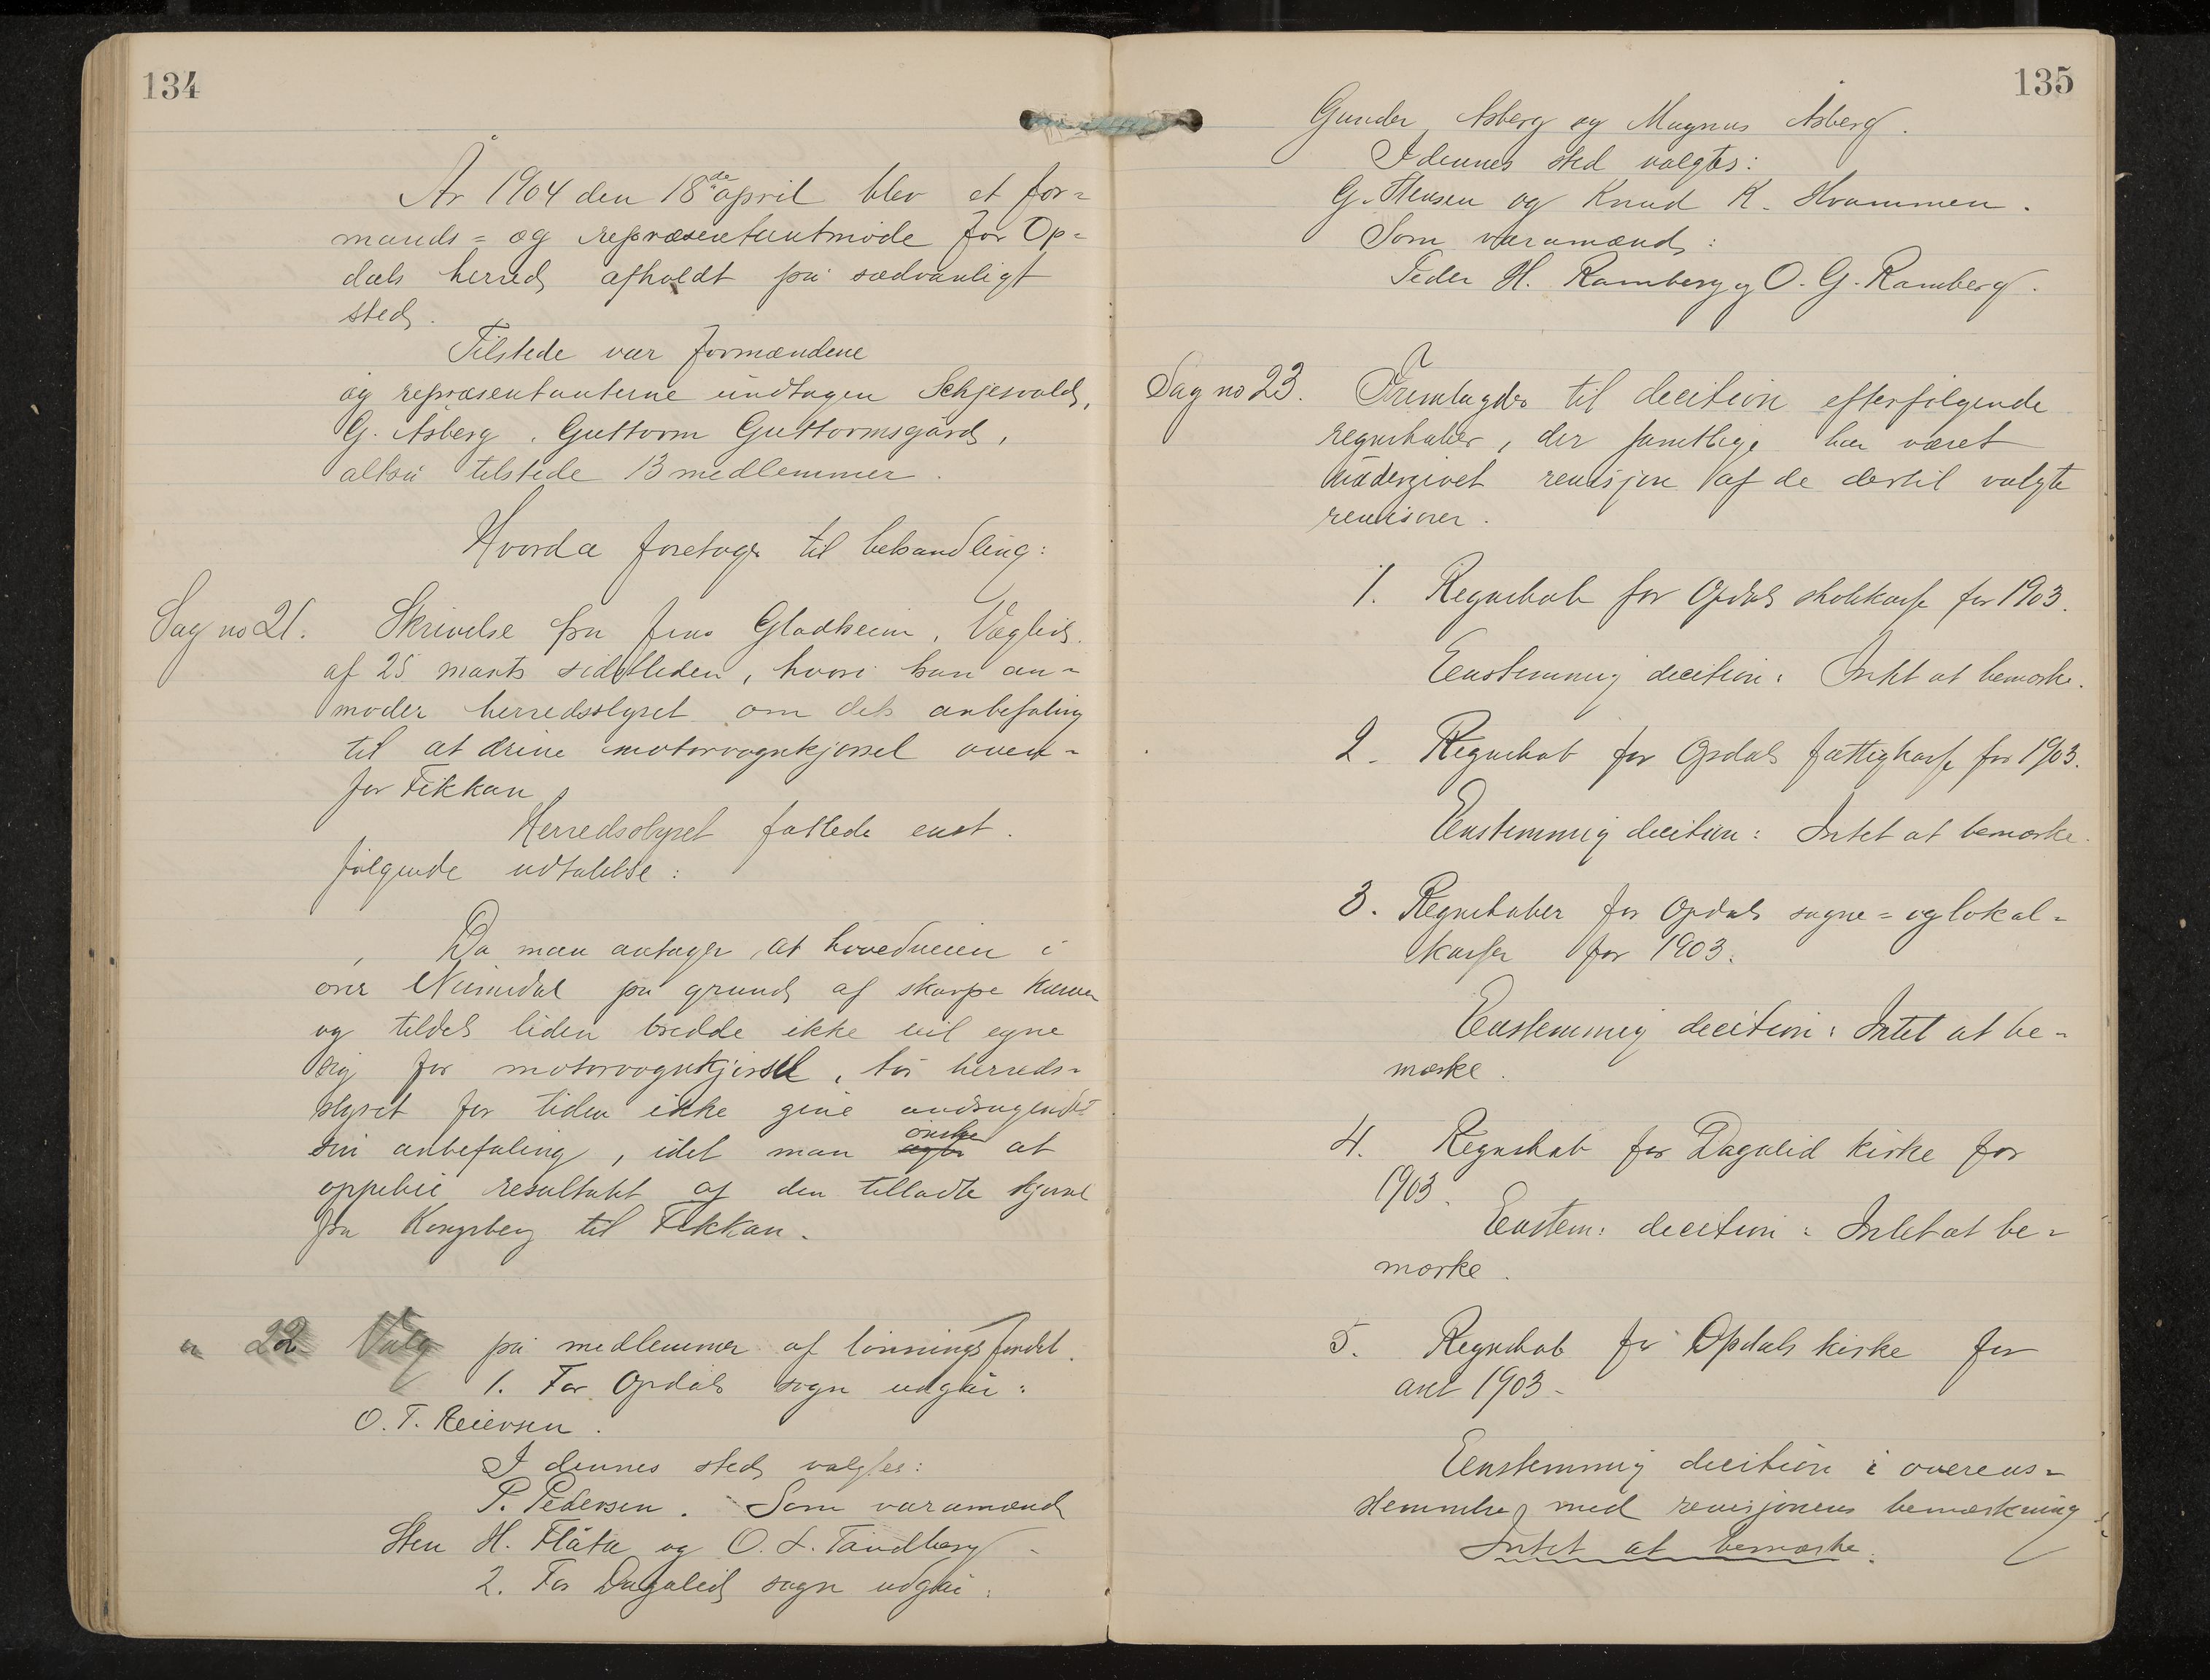 134
År 1904 den 18de april blev et for=
mands= og repræsentantmøde for Op=
dals herred afholdt på sædvanligt
sted.
Tilstede var formændene
og repræsentanterne undtagen Schjesvold,
G. Åsberg, Guttorm Guttormsgård,
altså tilstede 13 medlemmer.
Hvorda foretoges til behandling:
Sag no 21. Skrivelse fra Jens Gladheim, Væglid
af 25 marts sidstleden, hvori han an=
moder herredsstyret om dets anbefaling
til at drive motorvognkjørsel oven=
for Fikkan
Herredsstyret fattede enst.
følgende udtalelse:
Da man antager, at hovedveien i
øvre Numedal på grund af skarpe kurver
og tildels liden bredde ikke vil egne
sig for motorvognkjørsel, tør herreds=
styret for tiden ikke give andragendet
sin anbefaling, idet man ønsker at
oppebie resultatet af den tilladte kjørsel
fra Kongsberg til Fikkan.
" 22 Valg på medlemmer af lønningsfondet.
1. For Opdals sogn udgår:
O. T. Reiersen.
I dennes sted valgtes:
P. Pedersen. Som varamænd
Sten H. Flåta og O. L. Tandberg
2. For Dagalid sogn udgår:
135
Gunder Åsberg og Magnus Åsberg.
I dennes sted valgtes:
G. Stensen og Knud K. Hvammen.
Som varamænd:
Peder H. Ramberg og O. G. Ramberg.
Sag no 23. Fremlagdes til decition efterfølgende
regnskaber, der samtlige har været
undergivet revisjon af de dertil valgte
revisorer.
1. Regnskab for Opdals skolekasse for 1903.
Eenstemmig decition: Intet at bemærke.
2. Regnskab for Opdals fattigkasse for 1903.
Eenstemmig decition: Intet at bemærke.
3. Regnskaber for Opdals sogne= og lokal=
kasser for 1903.
Eenstemmig decition: Intet at be=
mærke.
4. Regnskab for Dagalid kirke for
1903.
Eenstem: decition: Intet at be=
mærke.
5. Regnskab for Opdals kirke for
året 1903.
Eenstemmig decition i overens=
stemmelse med revisjonens bemærkning
Intet at bemærke.